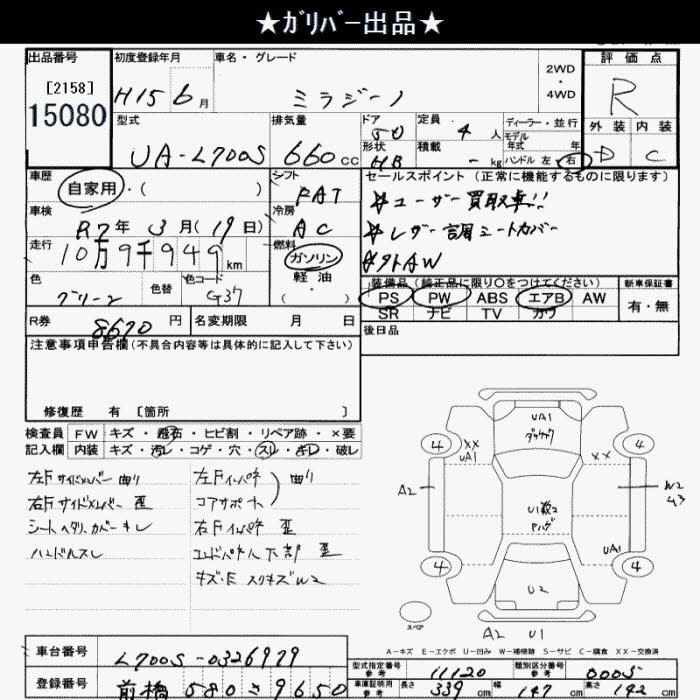 ★ガリバー出品★
出品番号
[2158]
15080
初度登録年月
H15 6月
車名・グレード
ミラジーノ
2WD
・
4WD
評価点
R
外装 内装
D C
型式
UA-L700S
排気量
660cc
ドア
5D
形状
HB
定員
4人
積載
-kg
ディーラー・並行
モデル
年式 年
ハンドル 左 右
車歴
自家用・( )
車検
R7年 3月(19日)
走行
10万9千949km
色
グリーン
色替
色コード
G37
シフト
FAT
冷房
AC
燃料
ガソリン
軽油
・
( )
セールスポイント(正常に機能するものに限ります)
☆ユーザー買取車!!
☆レザー調シートカバー
☆社外AW
装備品(純正品に限り○をつけてください)
PS PW ABS エアB AW
SR ナビ TV カワ
新車保証書
有・無
R券
8670円
名変期限 月 日
後日品
注意事項申告欄(不具合内容等は具体的に記入して下さい)
修復歴 有 [箇所 ]
検査員 FW キズ・飛石・ヒビ割・リペア跡・×要
記入欄 内装 キズ・汚レ・コゲ・穴・スレ・キレ・破レ
左Fサイドメンバー 曲り
右Fサイドメンバー 歪
シートヘタリ カバーキレ
ハンドルスレ
左Fインパネ 曲り
コアサポート
右Fインパネ 歪
エンドパネル下部 歪
キズ・E スリキズW2
UA1
4 4
XX
UA1
XX
A2
W2
U3
UA1
4 4
U2
スペア
A2 U1
A-キズ E-エクボ U-凹み W-補修跡 S-サビ C-腐食 XX-交換済
車台番号
L700S-0326979
登録番号
前橋 580 さ 9650
型式指定番号
参考
11120
類別区分番号
参考
0005
車庫証明用
参考
長さ 339cm 幅 147cm 高さ 142cm